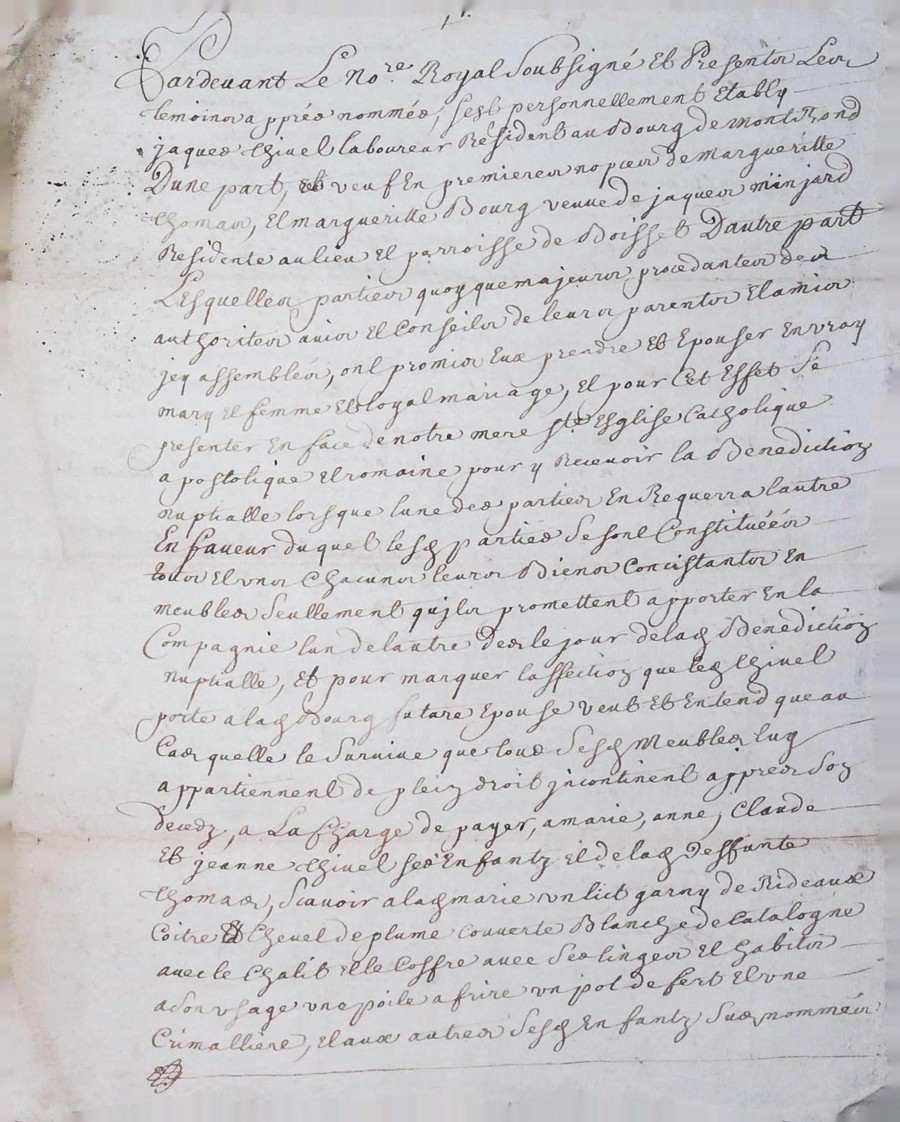 Pardevant Le No.re Royal Soubsigné Et Presentos Les
temoinos apprés nommés, sest personnellement Etably
jaques thivel laboureur Résident au Bourg de montRond
Dune part, et veuf En premieres nopces de margueritte
thomas, El margueritte Bourg veuve de jaques minjard
Residente au lieu El parroisse de Boisset Dautre part
Lesquelles parties quoyque majeurs procedantes des
authorites avis El Conseils de leurs parents El amis
jcy assemblés, onl promis Eux prendre Et Epouser En vray
mary El femme Et loyal mariage, El pour Cet Effet Se
presenter En face de notre mere Ste Esglise Catholique
apostolique El romaine pour y Recevoir la Benediction
nuptialle lorsque lune des parties En Requerra lautre
En faveur duquel lesd parties Se sonl Constituéés
tous El uns Chacuns leurs Biens Concistants En
meubles Seullement qujls promettent apporter En la
Compagnie lun de lautre desle jour de lad Benediction
nuptialle, Et pour marquer laffection que led thivel
porte a lad Bourg future Epouse veut Et Entend que au
Cas quelle le Survive que tous Sesd Meubles luy
appartiennent de plein droit jncontinent appres Son
decedz, a La Charge de payer, a marie, anne, Claude
Et jeanne thivel ses Enfantz El de lad deffunte
thomas, Scavoir a lad marie un lict garny de Rideaux
Coitre Et Chevet de plume Couverte Blanche de Catalogne
avec le Chalit Et le Coffre avec Ses linges El habits
a Son usage une poile a frire un pot de fert El une
Crimalliere, El aux autres Sesd Enfantz Sus nommés